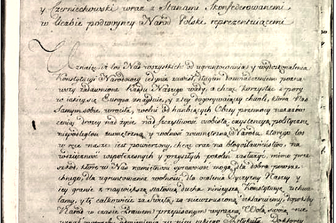 y Czerniechowski, wraz z Stanami Skonfederowanemi
w liczbie podwoyney Naród Polski reprezentuiącemi
Uznaiąc, iż los Nas wszystkich od ugruntowania y wydoskonalenia
Konstytucyi Narodowey iedynie zawisł, długim doświadczeniem pozna-
wszy zadawnione Rządu Naszego wady, a chcąc korzystać z pory
w iakiey się Europa znayduie, y z tey dogorywaiącey chwili, która Nas
Samym sobie wróciła, wolni od hańbiących Obcey przemocy nakazów
ceniąc drożey nad życie, nad szczęśliwość osobistą, exystencyą polityczną
niepodległość zewnętrzną, y wolność wewnętrzną Narodu, którego los
w ręce nasze iest powierzony, chcąc oraz na błogosławieństwo, na
wdzięczność współczesnych y przyszłych pokoleń zasłużyć, mimo prze-
szkód, które w Nas namiętności sprawować mogą, dla dobra powsze-
chnego, dla ugruntowania wolności, dla ocalenia Oyczyzny Naszey, y
iey granic z naywiększą stałością ducha ninieyszą Konstytucyę uchwa-
lamy, y tę całkowicie za świętą, za niewzruszoną deklaruiemy, dopokiby
Naród w czasie Prawem przepisanym wyraźną Wolą swoią nie